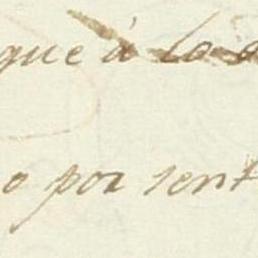 que à lo
o por sent